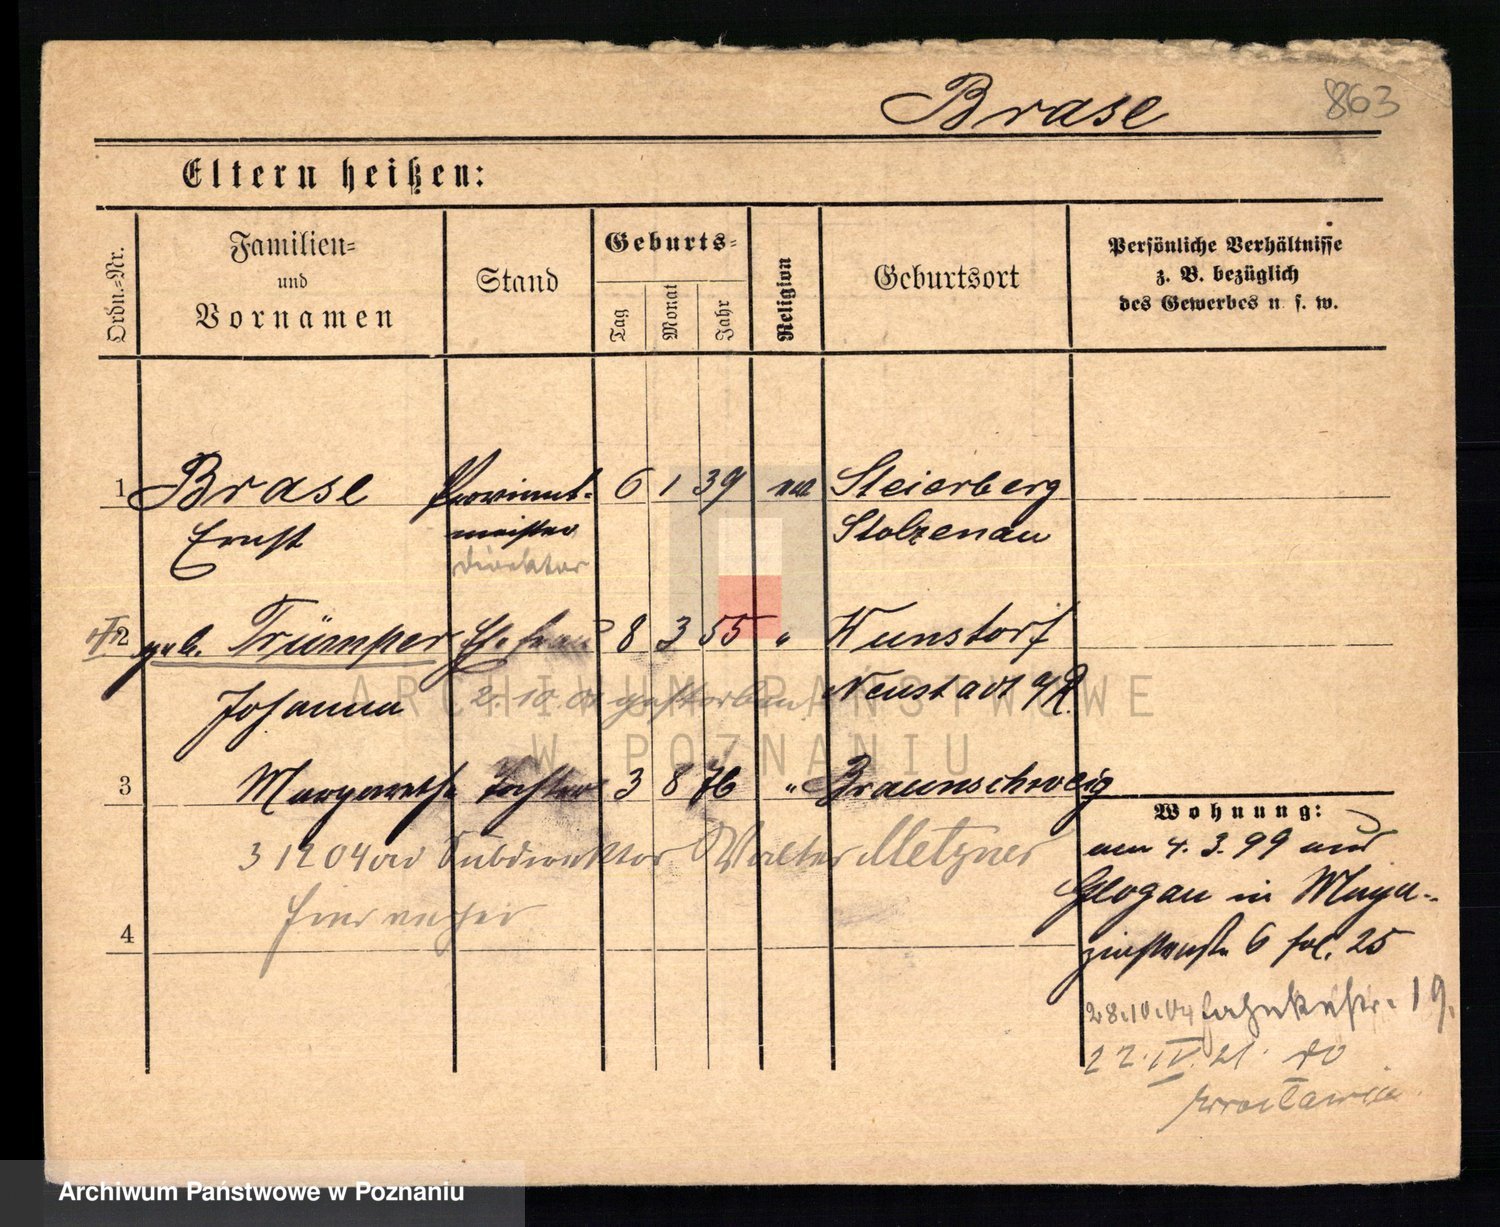 Brase 863
Eltern heißen:
Ordn.-Nr. Familien- und Vornamen Stand Geburts- Tag Monat Jahr Religion Geburtsort Persönliche Verhältnisse z. B. bezüglich des Gewerbes u. s. w.
1 Brase Proviant- 6 1 39 Steierberg
Ernst meister Stolzenau
direktor
2 geb. Trümper Ehefrau 8 3 55 " Wunstorf
Johanna 2. 10. gestorben Neustadt a/R.
3 Margarethe Tochter 3 8 76 " Braunschweig
Wohnung:
3 12 04 Subdirektor Walter Metzner
am 4. 3. 99 aus
Glogau in Maga-
4
zinstr. 6 fol. 25
28.10.04 19.
22.IV.21. do
Wrocławia
ARCHIWUM PAŃSTWOWE
W POZNANIU
Archiwum Państwowe w Poznaniu